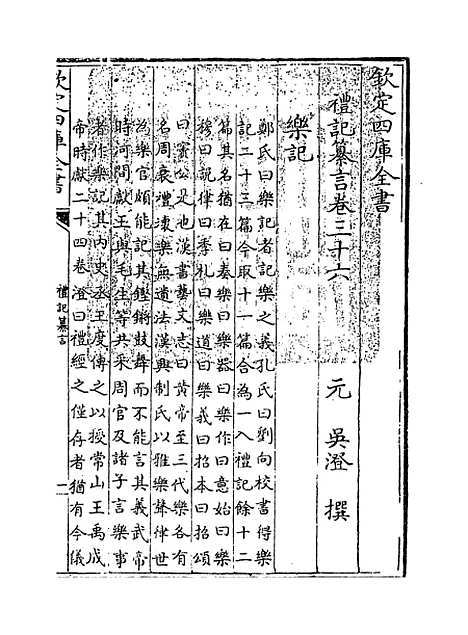 欽定四庫全書
禮記纂言卷三十六
元 吳澄 撰
樂記
鄭氏曰樂記者記樂之義孔氏曰劉向校書得樂
記二十三篇今取十一篇合為一入禮記餘十二
篇其名猶在曰奏樂曰樂器曰樂作曰意始曰樂
穆曰說律曰季札曰樂道曰樂義曰招本曰招頌
曰竇公是也漢書藝文志曰黃帝至三代樂各有
名周衰禮壞樂無遺法漢興制氏以雅樂聲律世
為樂官頗能記其鏗鏘鼓舞而不能言其義武帝
時河間獻王與毛生等共采周官及諸子言樂事
者作樂記其內史丞王度傳之以授常山王禹成
帝時獻二十四卷澄曰禮經之僅存者猶有今儀
欽定四庫全書
禮記纂言
一